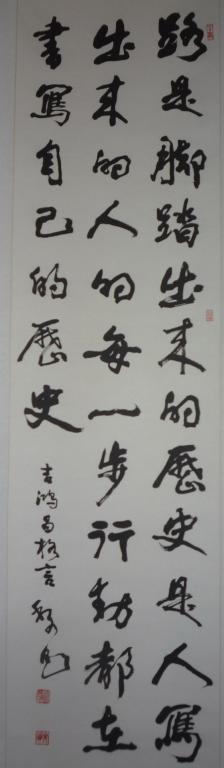 路是脚踏出来的歷史是人寫
出来的人的每一步行動都在
書寫自己的歷史
吉鴻昌格言